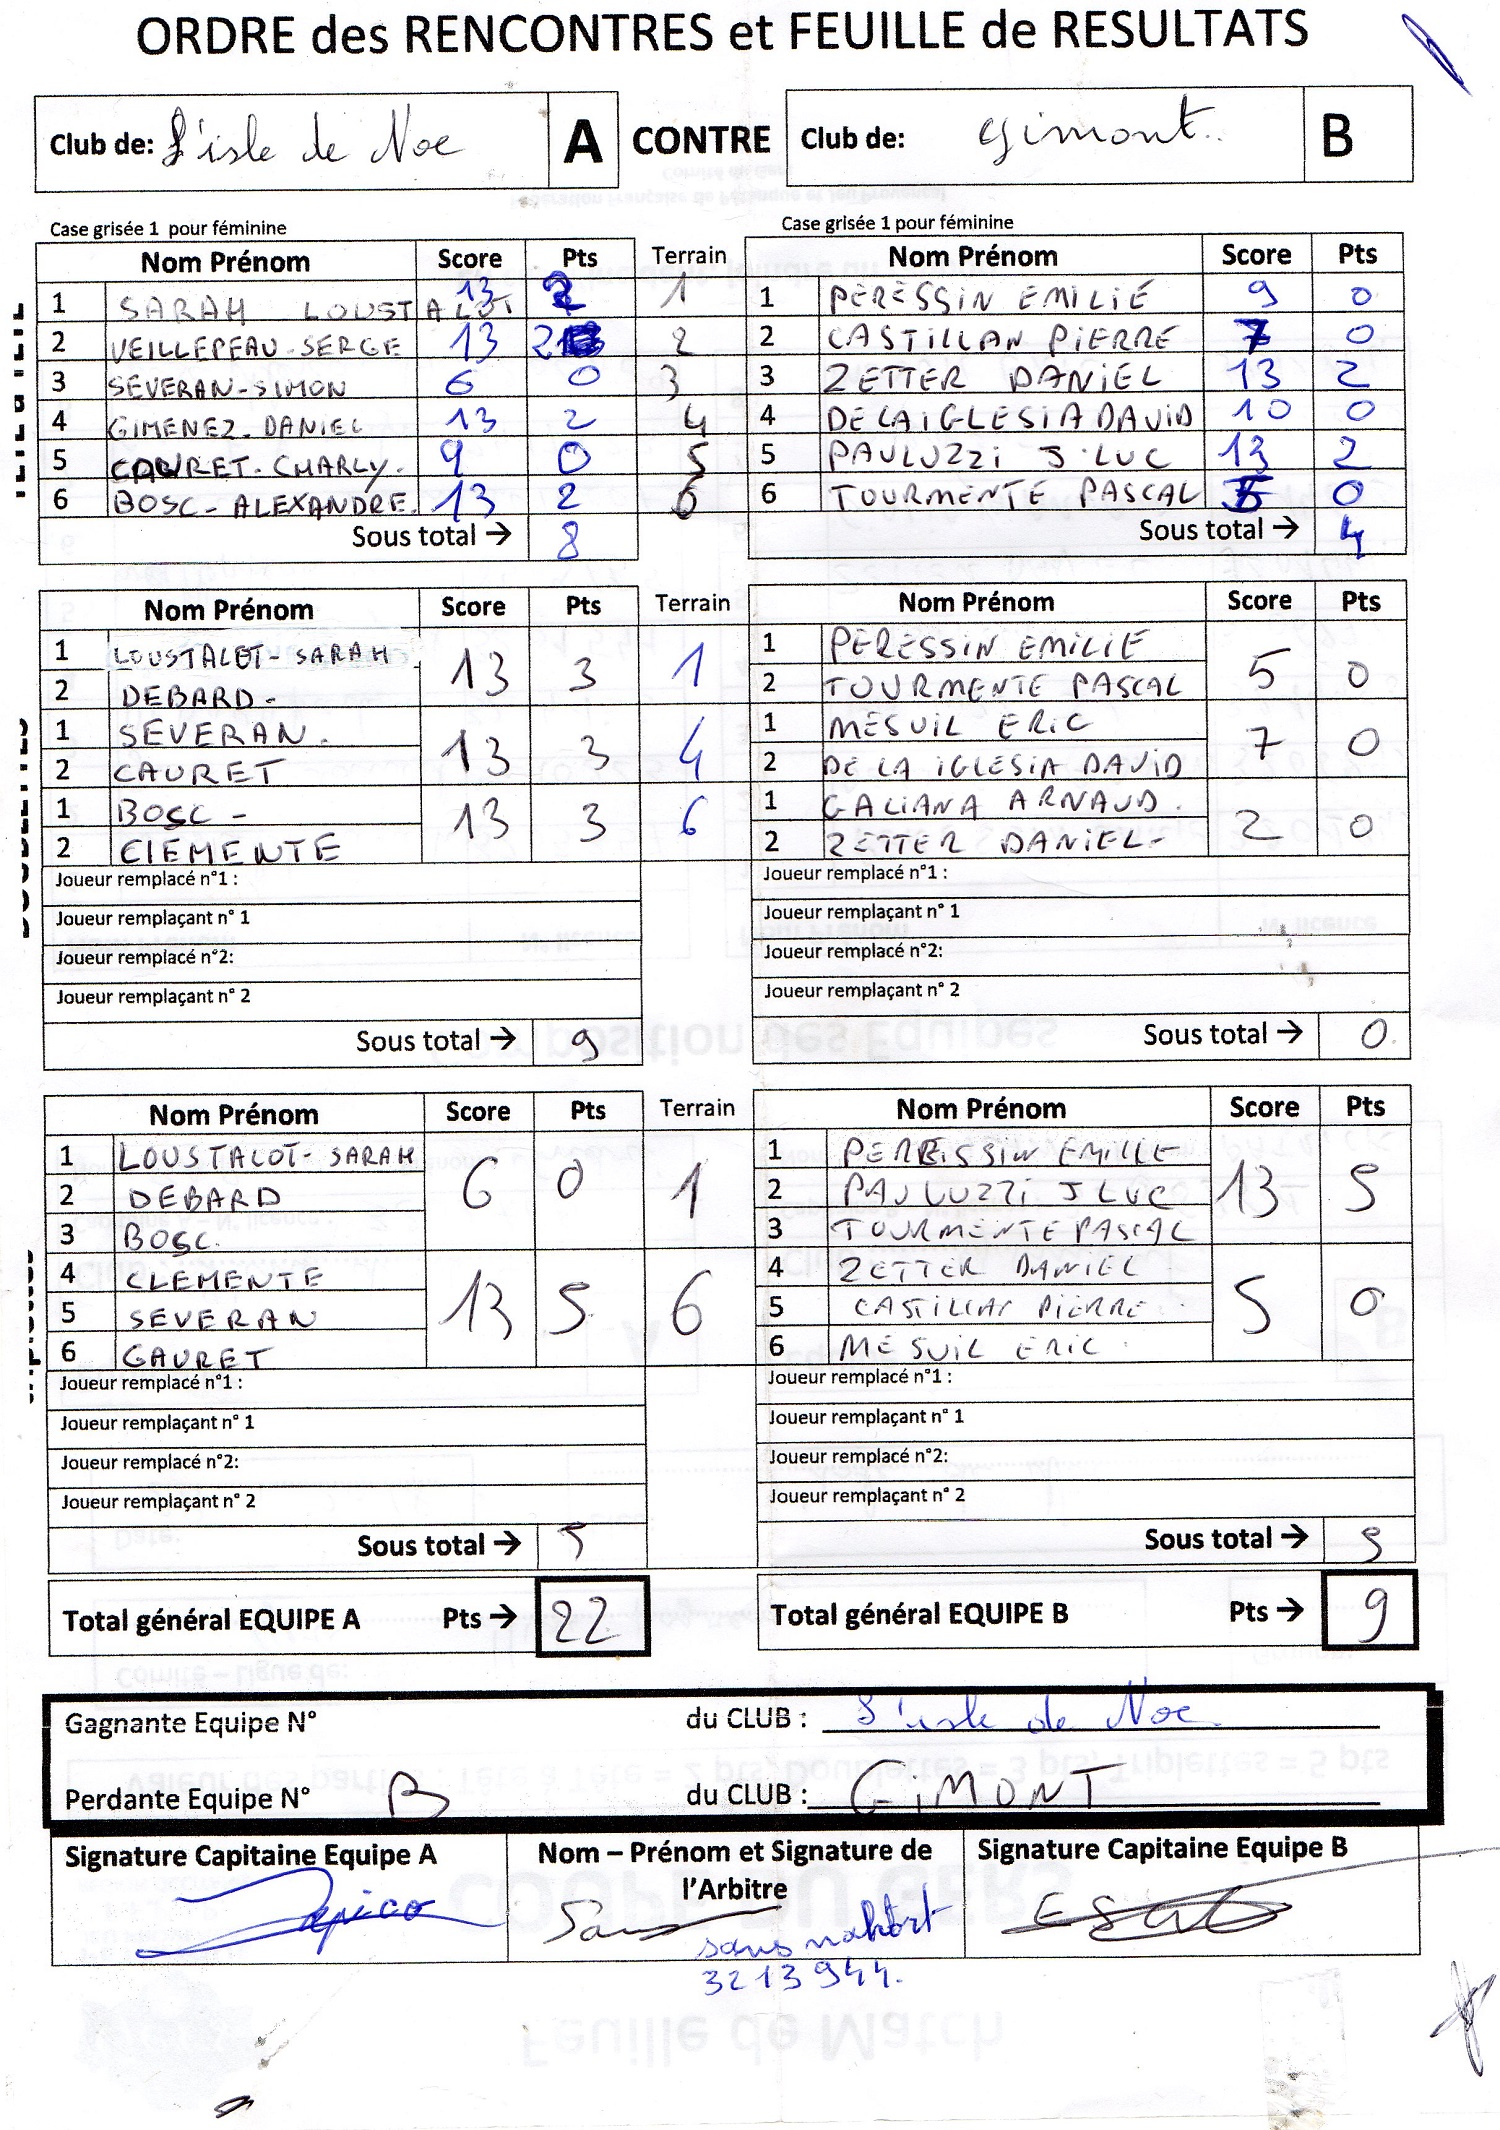 ORDRE des RENCONTRES et FEUILLE de RESULTATS
Club de: L'isle de Noe A CONTRE Club de: Gimont B
Case grisée 1 pour féminine Case grisée 1 pour féminine
Nom Prénom Score Pts Terrain Nom Prénom Score Pts
1 SARAH LOUSTALOT 13 2 1 1 PERESSIN EMILIE 9 0
2 VEILLEPEAU-SERGE 13 2 2 2 CASTILLAN PIERRE 7 0
3 SEVERAN-SIMON 6 0 3 3 ZETTER DANIEL 13 2
4 GIMENEZ.DANIEL 13 2 4 4 DE LA IGLESIA DAVID 10 0
5 CAURET.CHARLY. 9 0 5 5 PAULUZZI J.LUC 13 2
6 BOSC-ALEXANDRE. 13 2 6 6 TOURMENTE PASCAL 5 0
Sous total → 8 Sous total → 4
Nom Prénom Score Pts Terrain Nom Prénom Score Pts
1 LOUSTALOT-SARAH 13 3 1 1 PERESSIN EMILIE 5 0
2 DEBARD- 2 TOURMENTE PASCAL
1 SEVERAN. 13 3 4 1 MESUIL ERIC 7 0
2 CAURET 2 DE LA IGLESIA DAVID
1 BOSC - 13 3 6 1 GALIANA ARNAUD. 2 0
2 CLEMENTE 2 ZETTER DANIEL-
Joueur remplacé n°1 : Joueur remplacé n°1 :
Joueur remplaçant n° 1 Joueur remplaçant n° 1
Joueur remplacé n°2: Joueur remplacé n°2:
Joueur remplaçant n° 2 Joueur remplaçant n° 2
Sous total → 9 Sous total → 0.
Nom Prénom Score Pts Terrain Nom Prénom Score Pts
1 LOUSTALOT-SARAH 6 0 1 1 PERESSIN EMILIE 13 5
2 DEBARD 2 PAULUZZI J LUC
3 BOSC. 3 TOURMENTE PASCAL
4 CLEMENTE 13 5 6 4 ZETTER DANIEL 5 0
5 SEVERAN 5 CASTILLAN PIERRE
6 GAURET 6 MESUIL ERIC
Joueur remplacé n°1 : Joueur remplacé n°1 :
Joueur remplaçant n° 1 Joueur remplaçant n° 1
Joueur remplacé n°2: Joueur remplacé n°2:
Joueur remplaçant n° 2 Joueur remplaçant n° 2
Sous total → 5 Sous total → 5
Total général EQUIPE A Pts → 22 Total général EQUIPE B Pts → 9
Gagnante Equipe N° du CLUB : L'isle de Noe
Perdante Equipe N° B du CLUB : GIMONT
Signature Capitaine Equipe A Nom – Prénom et Signature de Signature Capitaine Equipe B
l'Arbitre
3213944.